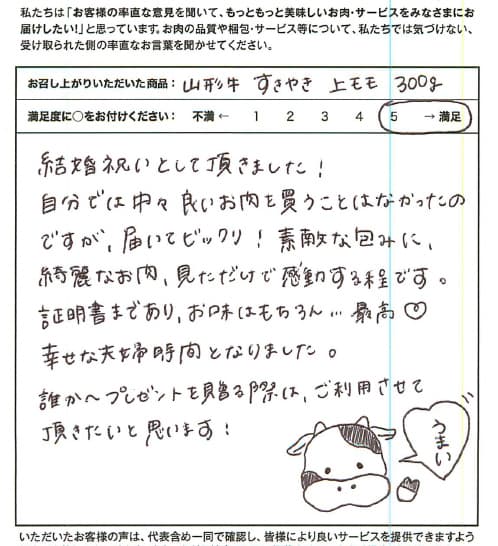 私たちは「お客様の率直な意見を聞いて、もっともっと美味しいお肉・サービスをみなさまにお
届けしたい!」と思っています。お肉の品質や梱包・サービス等について、私たちでは気づけない、
受け取られた側の率直なお言葉を聞かせてください。
お召し上がりいただいた商品： 山形牛 すきやき 上モモ 300g
満足度に○をお付けください： 不満 ← 1 2 3 4 5 → 満足
結婚祝いとして頂きました！
自分では中々良いお肉を買うことはなかったの
ですが、届いてビックリ！素敵な包みに、
綺麗なお肉、見ただけで感動する程です。
証明書まであり、お味はもちろん…最高♡
幸せな夫婦時間となりました。
誰かへプレゼントを贈る際は、ご利用させて
頂きたいと思います！
うまい
いただいたお客様の声は、代表含め一同で確認し、皆様により良いサービスを提供できますよう